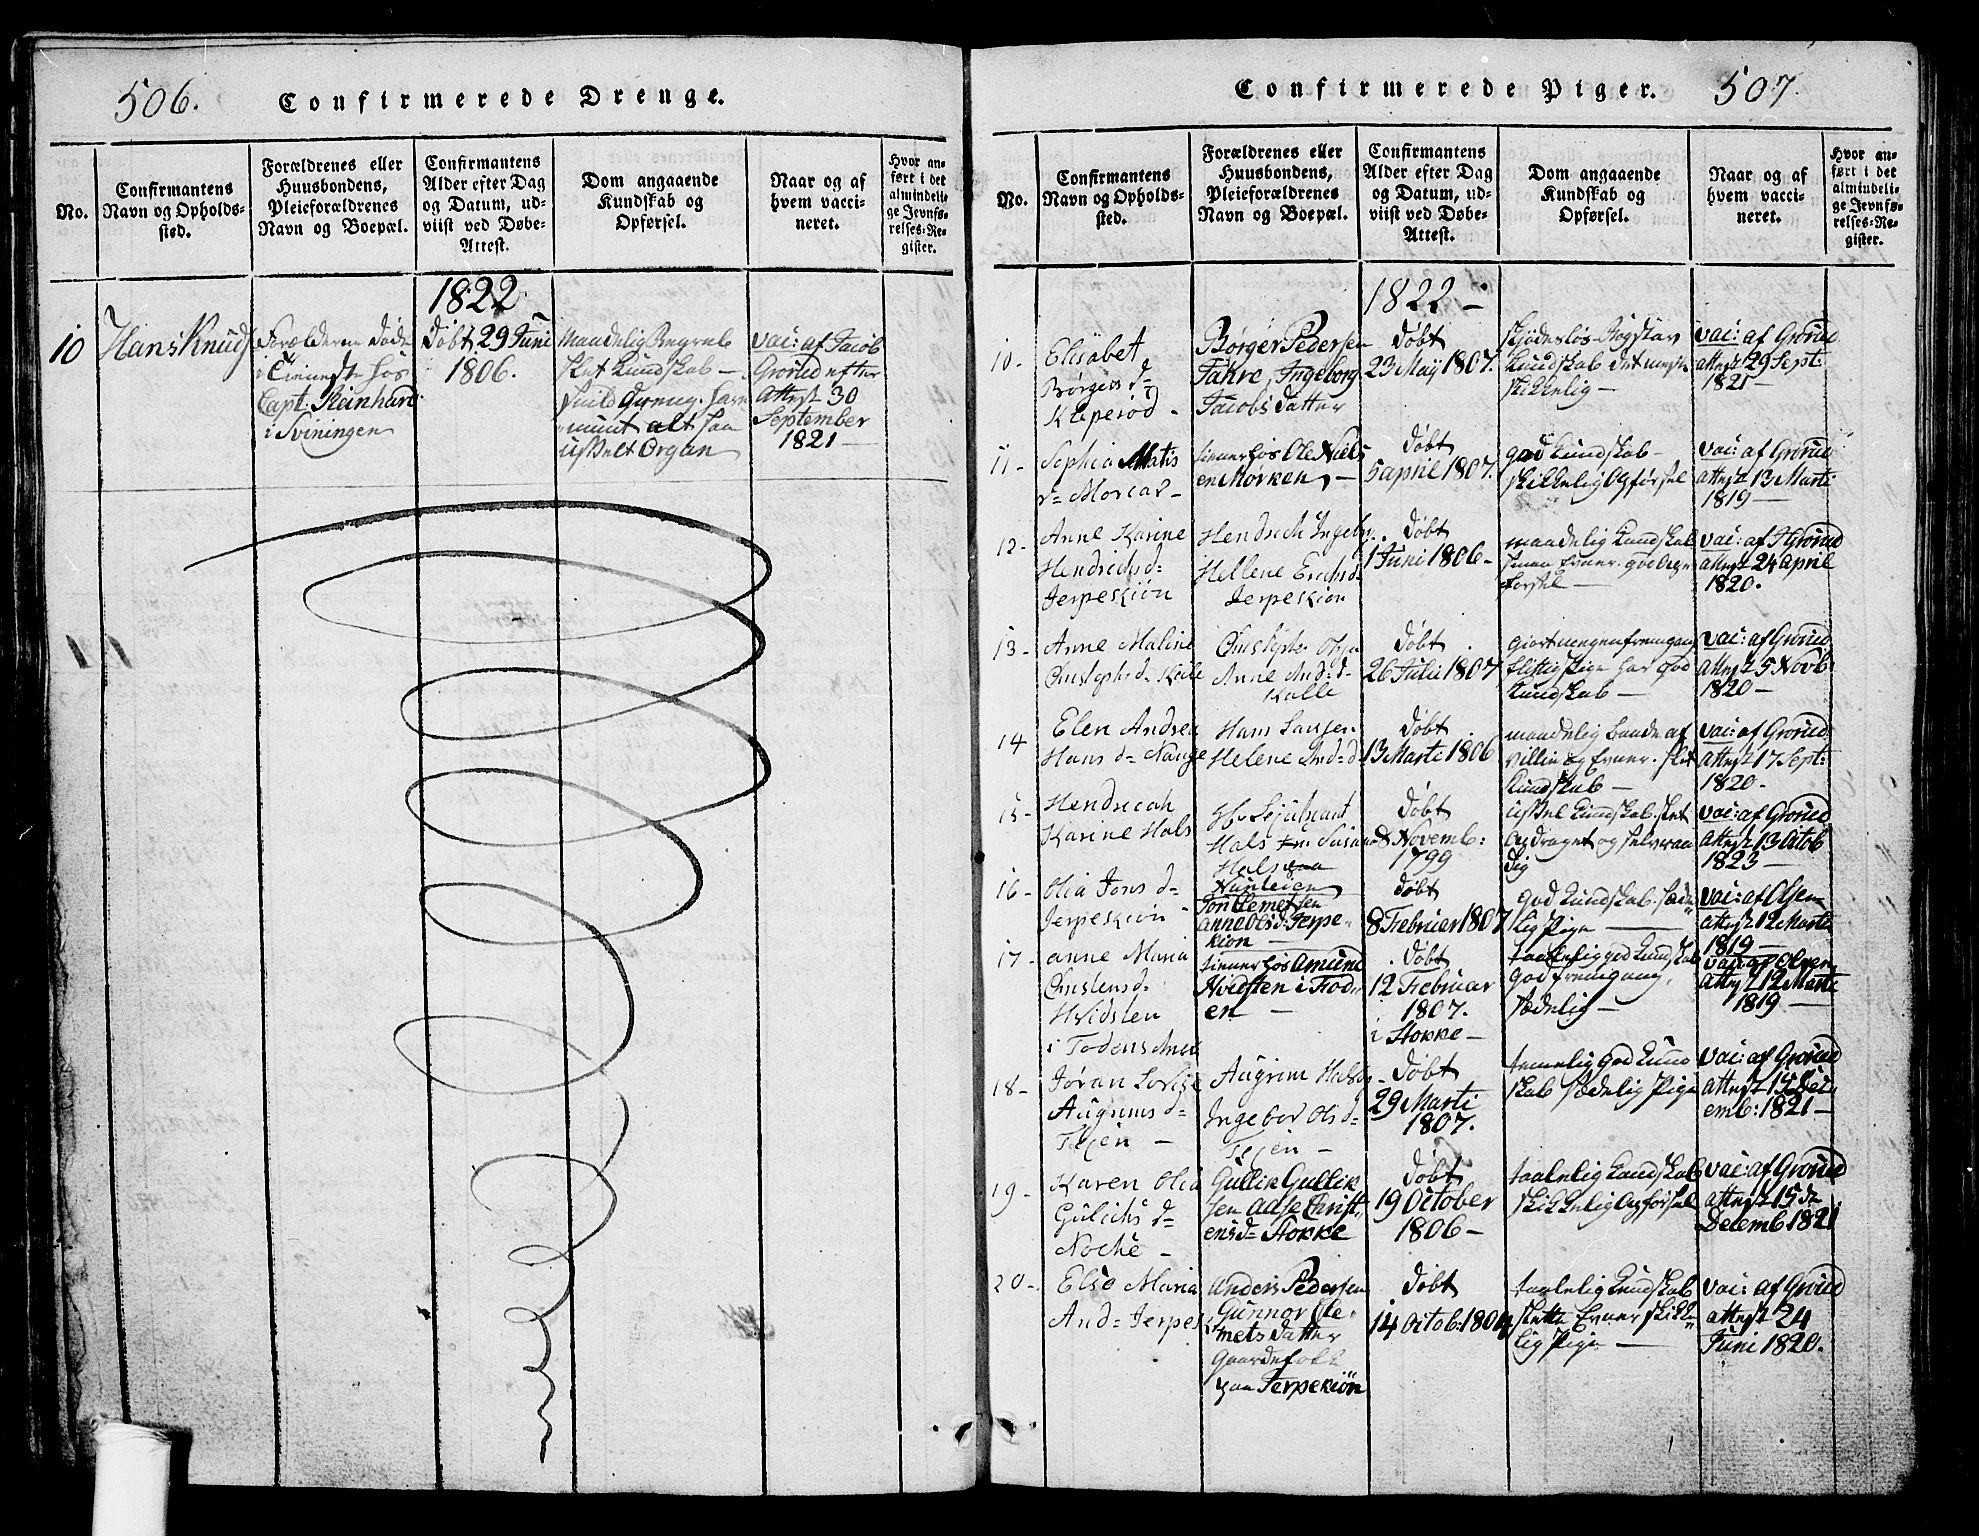 506.
Confirmerede Drenge.
No.
Confirmantens
Navn og Opholds-
sted.
Forældrenes eller
Huusbondens,
Pleieforældrenes
Navn og Boepæl.
Confirmantens
Alder efter Dag
og Datum, ud-
viist ved Døbe-
Attest.
Dom angaaende
Kundskab og
Opførsel.
Naar og af
hvem vacci-
neret.
Hvor an-
ført i det
almindeli-
ge Jevnfø-
relses-Re-
gister.
1822
10
Hans Knuds
Forælderne døde
i Tieneste hos
Capt: Reinhard
i Sviningen
døbt 29 Juni
1806.
maadelig
slet Kundskab –
alt saa
Organ
vac: af Jacob
Grorud efter
Attest 30
September
1821 –
507.
Confirmerede Piger.
No.
Confirmantens
Navn og Opholds-
sted.
Forældrenes eller
Huusbondens,
Pleieforældrenes
Navn og Boepæl.
Confirmantens
Alder efter Dag
og Datum, ud-
viist ved Døbe-
Attest.
Dom angaaende
Kundskab og
Opførsel.
Naar og af
hvem vacci-
neret.
Hvor an-
ført i det
almindeli-
ge Jevnfø-
relses-Re-
gister.
1822 –
10 -
Elisabet
Børgers d=
Kloperød -
Børger Pedersen
Fahre, Ingeborg
Jacobs datter
døbt
23 May 1807.
Kundskab
skikkelig –
vac: af Grorud
attest 29 Sept:
1821 –
11 -
Sophia Matis
d= Morcar -
tiener hos Ole Niels
en Mørken, –
døbt
5 april 1807.
god Kundskab –
skikkelig Opførsel
vac: af Grorud
attest 13 Marti
1819 –
12 -
Anne Karine
Hendrichs d=
Jerpeskiøn
Hendrich Ingebr.
Hellene Erichs d=
Jerpeskiøn
døbt
1 Juni 1806 -
maadelig Kundskab
smaa Evner. god Op=
førsel –
vac: af J Grorud
attest 24 april
1820.
13 -
Anne Maline
Christophs d= Kalle
Christopher
Anne And: d=
Kalle
døbt
26 Julii 1807
giort megen fremgang
flittig Pige har god
Kundskab –
vac: af Grorud
attest 5 Novb
1820 –
14
Elen Andrea
Hans d= Nauge
Hans Laursen
Helene And: d=
døbt
13 Marti 1806
maadelig baade af
Villie og Evner. slet
Kundskab –
vac: af Grorud
attest 17 Sept:
1820.
15 -
Hendricah
Karine Hals
Hals
Hals
døbt
8 Novemb:
1799
ussel Kundskab. slet
opdraget og selvraa
dig
vac: af Grorud
attest 13 Octob
1823 –
16 -
Olia Jons d=
Jerpeskiøn -
Jon Clemetsen
Anne Ols d= Jerpe-
kiøn –
døbt
8 Februer 1807
god Kundskab. sæde
lig Pige –
vac: af Olsen
attest 12 Marti
1819 –
17 -
anne Maria
Christens d=
Hvidsten
tiener hos Amund
Hvidsten i Fod=
en –
døbt
12 Februar
1807.
i Stokke –
taalelig god Kundskab
god fremgang,
sædelig –
vac: af Olsen
attest 12 Marti
1819 –
18 -
Jøran
Augrims d=
Texen –
Augrim
Ingebor Ols d=
Texen –
døbt
29 Marti
1807.
temmelig god Kund
skab sædelig Pige
vac: af Grorud
attest 14 Dec
emb: 1821 –
19 -
Karen Olia
Gulichs d=
Noche –
Gullik Gullik
sen Aase Christ
ens d= Stokke
døbt
19 October
1806 –
taalelig Kundskab
skikkelig Opførsel
vac: af Grorud
attest 15 de
Decemb 1821
20 -
Else Maria
And= Jerpes
Anders Pedersen
Gunnor Cle-
mets datter
Gaardefolk
paa Jerpekiøn
døbt
14 Octob: 1804
taalelig Kundskab
slette Evner skikke
lig Pige –
vac: af Grorud
attest 24
Juni 1820.